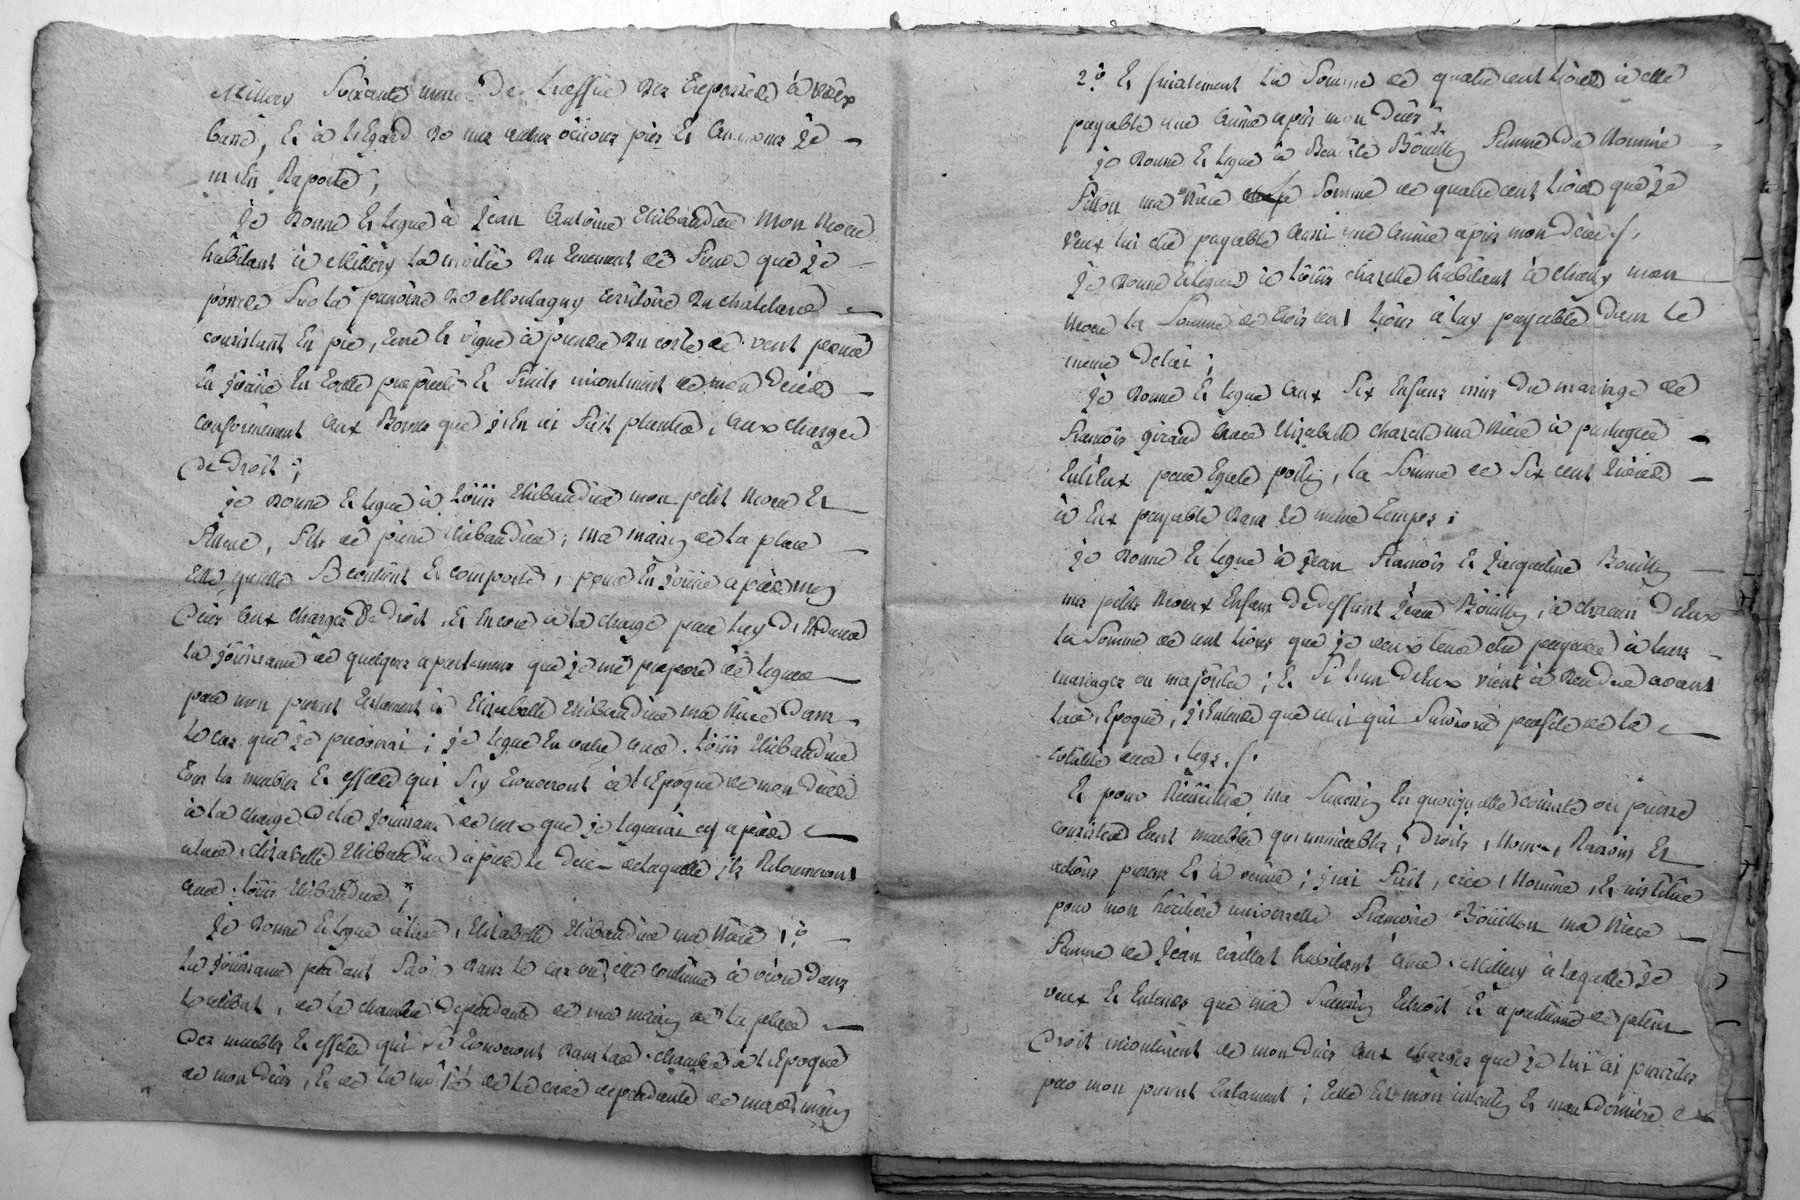 Millery Soixante messes de Trespassés à voix
basse, Et à l'Egard de mes autres œuvres pies Et aumones Je
m'en Raporte ;
Je Donne Et legue à Jean Antoine Thibaudier Mon Neveu
habitant à Millery La moitié du Tenement de fonds que Je
possede Sur la paroisse de Montagny territoire du Chatelard
consistant En pré, terre Et vigne à prendre du coté de vent pour
En Jouir En toute proprieté Et fruits incontinent de mon Deces
conformement aux Bornes que J'En ai fait planter, aux charges
de Droit ;
Je Donne Et legue à Louis Thibaudier mon petit Neveu Et
filleul, fils de pierre Thibaudier ; ma maison de la place
telle qu'elle Se contient Et comporte, pour En Jouir après mon
Deces aux charges De Droit, Et Encore à la charge par luy d'Endurer
la Jouissance de quelques apartements que Je me propose de leguer
par mon present testament à Elizabeth Thibaudier ma Niece Dans
le cas que Je ; Je legue En outre aud. Louis Thibaudier
tous les meubles Et effets qui S'y trouveront à l'Epoque de mon Deces
à la charge De la Jouissance de ceux que Je leguerai cy après
à lad. Elizabeth Thibaudier après le Deces de laquelle ils Retourneront
aud. Louis Thibaudier ;
Je Donne Et legue à lad. Elizabeth Thibaudier ma Niece 1.º
La Jouissance pendant Sa vie dans le cas où elle continue à vivre Dans
le celibat, de la chambre dependante de ma maison de la place
Des meubles Et effets qui Se trouveront dans lad. chambre à l'Epoque
de mon Deces, Et de la moitié de la cave dependante de mad. maison
2.º Et finalement La Somme de quatre cent livres à elle
payable une année après mon Deces ;
Je Donne Et legue à Benoite Boüillon femme de Nommé
Fillon ma Niece Somme de quatre cent livres que Je
veux lui etre payable aussi une année après mon Deces.
Je Donne Et legue à Louis Chazelle habitant à Charly mon
Neveu la Somme de trois cent livres à luy payable Dans le
meme Delai ;
Je Donne Et legue aux Six Enfans issus du mariage de
François Girard avec Elizabeth Chazelle ma Niece à partager
Entr'Eux par Egale portion, la Somme de Six cent livres
à Eux payable dans le meme temps ;
Je Donne Et legue à Jean François Et Jacqueline Boüillon
mes petits Neveux Enfans De deffunt Boüillon, à chacun D'eux
la Somme de cent livres que Je veux leur etre payable à leurs
mariages ou majorité ; Et Si l'un d'eux vient à avant
lad. Epoque, J'Entends que celui qui Survivra profite de la
totalité dud. legs.
Et pour Receuillir ma Succession En quoi qu'elle consiste ou puisse
consister tant meubles qu'immeubles, Droits, Noms, Raisons Et
actions presens Et à venir ; J'ai fait, créé, Nommé, Et institué
pour mon heritiere universelle Françoise Boüillon ma Niece
femme de Jean Caillat habitant aud. Millery à laquelle Je
veux Et Entends que ma Succession Echoit Et apartienne de plein
Droit incontinent de mon Deces aux charges que Je lui ai prescrites
par mon present testament ; telle Est mon intention Et ma Derniere